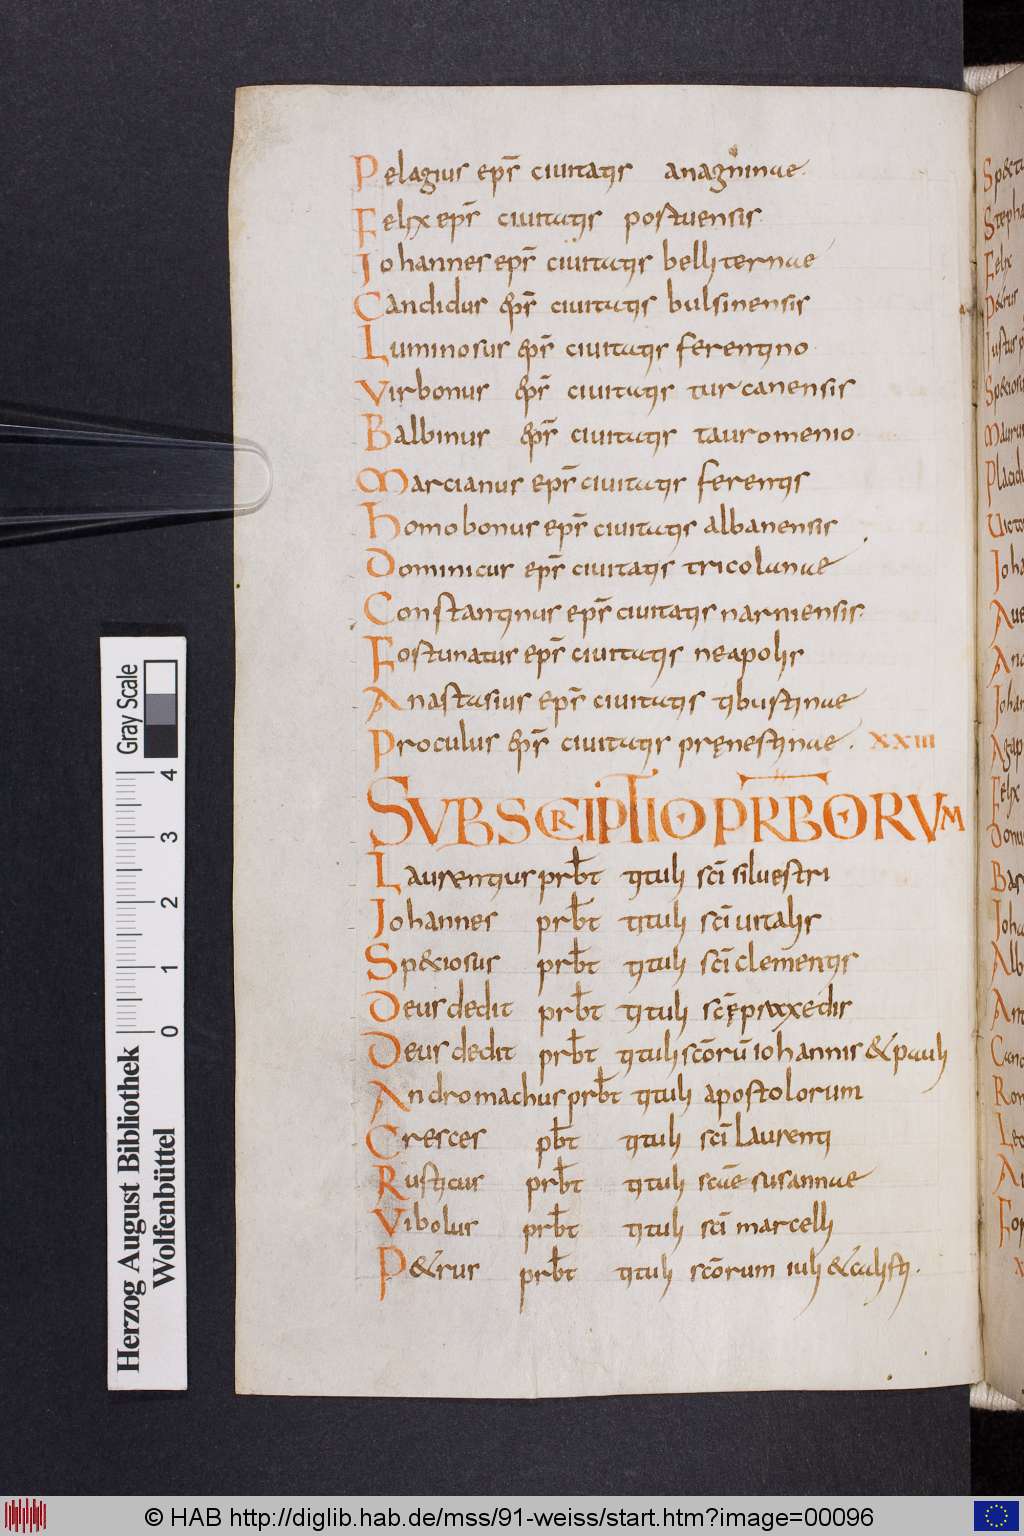 Pelagius ep̄s ciuitatis anagninae.
Felix ep̄s ciuitatis postuensis.
Iohannes ep̄s ciuitatis belliternae
Candidus ep̄s ciuitatis bulsinensis
Luminosus ep̄s ciuitatis ferentino
Virbonus ep̄s ciuitatis turcanensis
Balbinus ep̄s ciuitatis tauromenio.
Marcianus ep̄s ciuitatis ferentis
homobonus ep̄s ciuitatis albanensis
Dominicus ep̄s ciuitatis tricolanae
Constantinus ep̄s ciuitatis narniensis.
Fostunatus ep̄s ciuitatis neapolis
Anastasius ep̄s ciuitatis tibustinae
Proculus ep̄s ciuitatis pręnestinae. XXIII
SVBSCRIPTIO PRBORVM
Laurentius prb̄t tituli sc̄i siluestri
Iohannes prb̄t tituli sc̄i uitalis
Sp&iosus prb̄t tituli sc̄i clementis
Deus dedit prb̄t tituli sc̄ę praxedis
Deus dedit prb̄t tituli sc̄orū iohannis & pauli
Andromachus prb̄t tituli apostolorum
Cresces pb̄t tituli sc̄i Laurenti
Rusticus prb̄t tituli sc̄ae susannae
Vibolus prb̄t tituli sc̄i marcelli
P&rus prb̄t tituli sc̄orum iuli & calisti.
Gray Scale
0 1 2 3 4
Herzog August Bibliothek
Wolfenbüttel
© HAB http://diglib.hab.de/mss/91-weiss/start.htm?image=00096